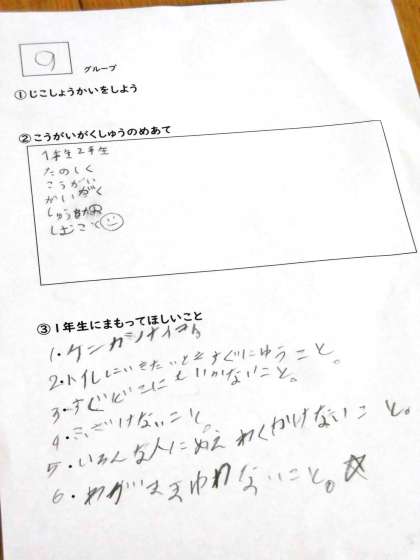 9 グループ
①じこしょうかいをしよう
②こうがいがくしゅうのめあて
1年生2年生
たのしく
こうがい
がいがく
しゅう
③1年生にまもってほしいこと
1・ケンカシナイコト
2・トイレにいきたいときすぐにゆうこと。
3・すぐどこにもいかないこと。
4・ふざけないこと。
5・いろんな人にめえわくかけないこと。
6・わがままゆわないこと。☆